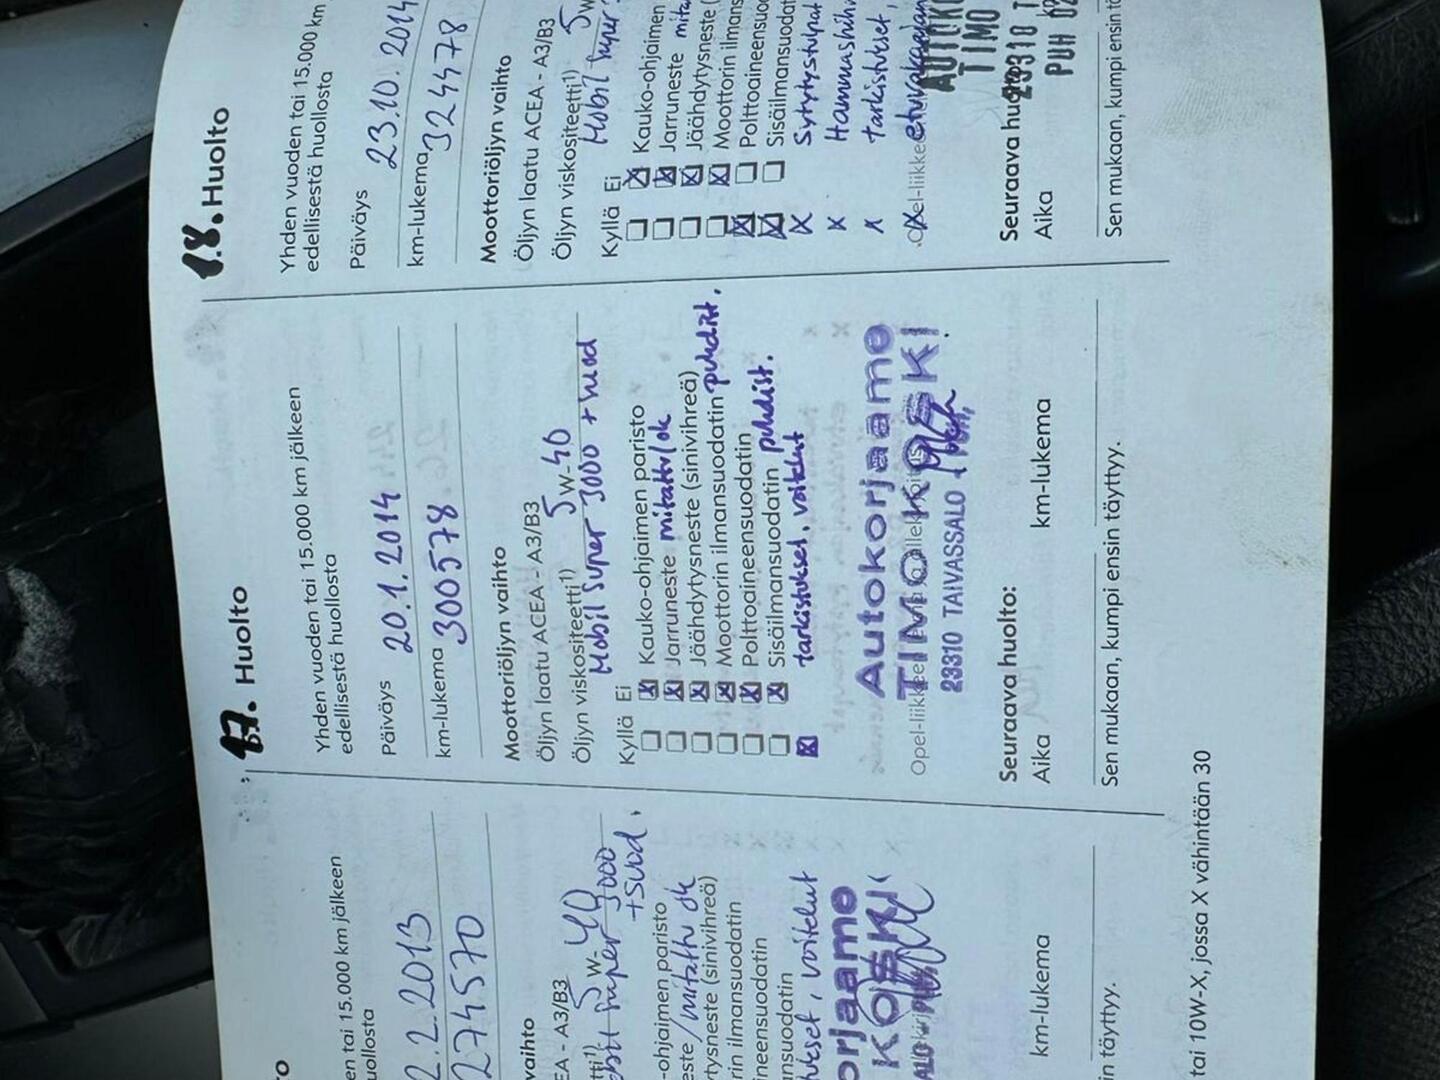 to
en tai 15.000 km jälkeen
uollosta
2.2.2013
274570
vaihto
EA - A3/B3
5W-40
Super 3000
+suod.
-ohjaimen paristo
este/mitattu ok
tysneste (sinivihreä)
rin ilmansuodatin
ineensuodatin
ansuodatin
voitelut
orjaamo
KOSKI
km-lukema
in täyttyy.
tai 10W-X, jossa X vähintään 30
17. Huolto
Yhden vuoden tai 15.000 km jälkeen
edellisestä huollosta
Päiväys 20.1.2014
km-lukema 300578
Moottoriöljyn vaihto
Öljyn laatu ACEA - A3/B3
Öljyn viskositeetti1) 5W-40
Mobil Super 3000 + suod
Kyllä Ei
Kauko-ohjaimen paristo
Jarruneste mitattu/ok
Jäähdytysneste (sinivihreä)
Moottorin ilmansuodatin puhdist.
Polttoaineensuodatin
Sisäilmansuodatin puhdist.
tarkistukset, voitelut
Autokorjaamo
TIMO KOSKI
23310 TAIVASSALO
Seuraava huolto:
Aika km-lukema
Sen mukaan, kumpi ensin täyttyy.
18. Huolto
Yhden vuoden tai 15.000 km
edellisestä huollosta
Päiväys 23.10.2014
km-lukema 324478
Moottoriöljyn vaihto
Öljyn laatu ACEA - A3/B3
Öljyn viskositeetti1) 5W
Mobil Super
Kyllä Ei
Kauko-ohjaimen
Jarruneste
Jäähdytysneste
Moottorin ilmans
Polttoaineensuo
Sisäilmansuodat
Sytytystulpat
Hammashihn
tarkistukset,
AUTOKO
TIMO
23310 T
PUH 02
Seuraava huo
Aika
Sen mukaan, kumpi ensin tä